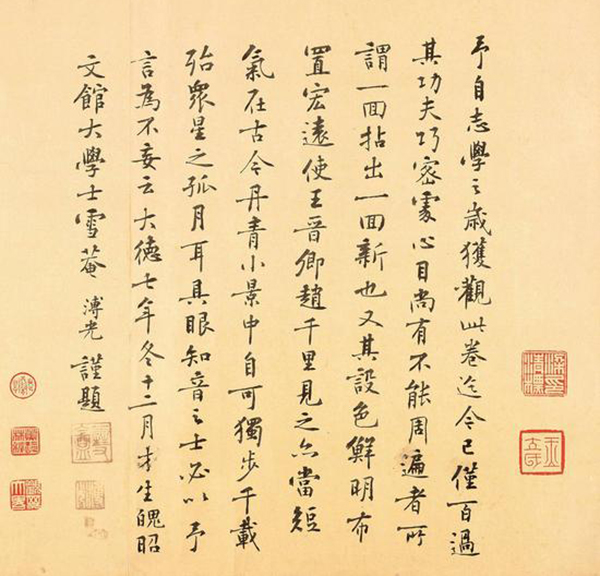 予自志學之歲獲觀此卷迄今已僅百過
其功夫巧密處心目尚有不能周遍者所
謂一囬拈出一囬新也又其設色鮮明布
置宏遠使王晉卿趙千里見之亦當短
氣在古今丹青小景中自可獨步千載
殆衆星之孤月耳具眼知音之士必以予
言為不妄云大德七年冬十二月才生魄昭
文館大學士雪菴溥光謹題